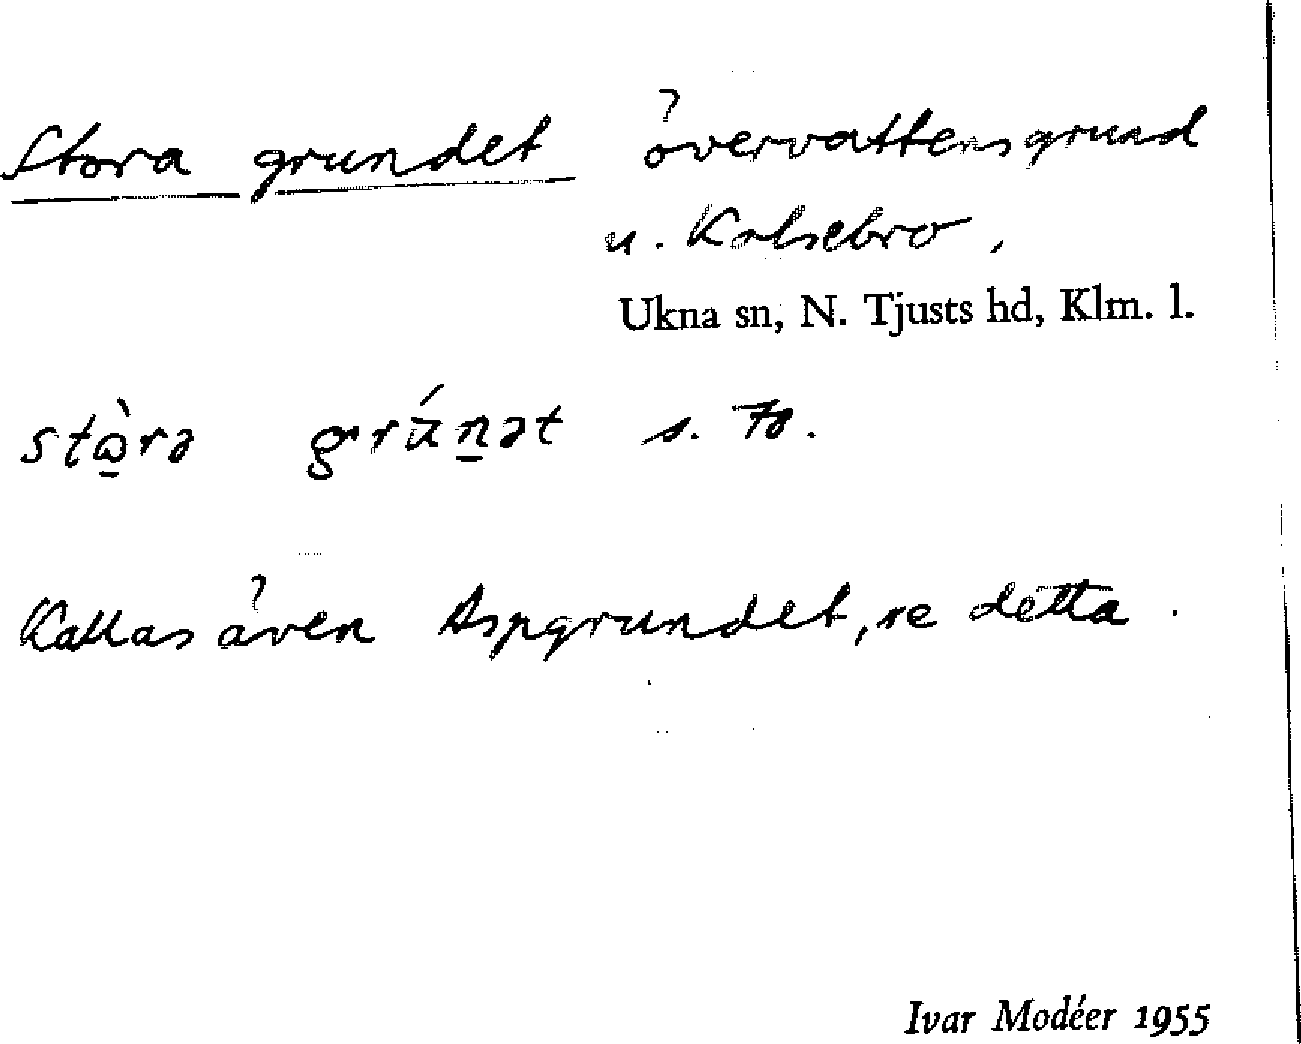 Stora grundet övervattensgrund
u. Kalsebro,
Ukna sn, N. Tjusts hd, Klm. l.
stɷ̀rə grúnət s.
Kallas även Aspgrundet, se detta.
Ivar Modéer 1955